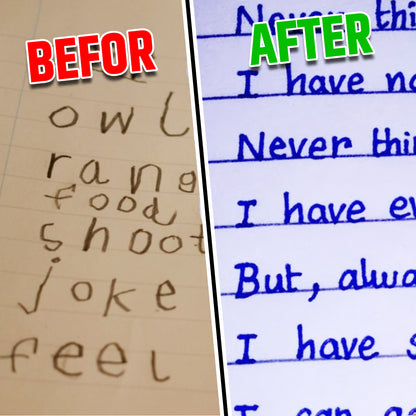 BEFOR
owl
rang
food
shoot
joke
feel
AFTER
Never thi
I have no
Never thin
I have ev
But, alwa
I have s
I can